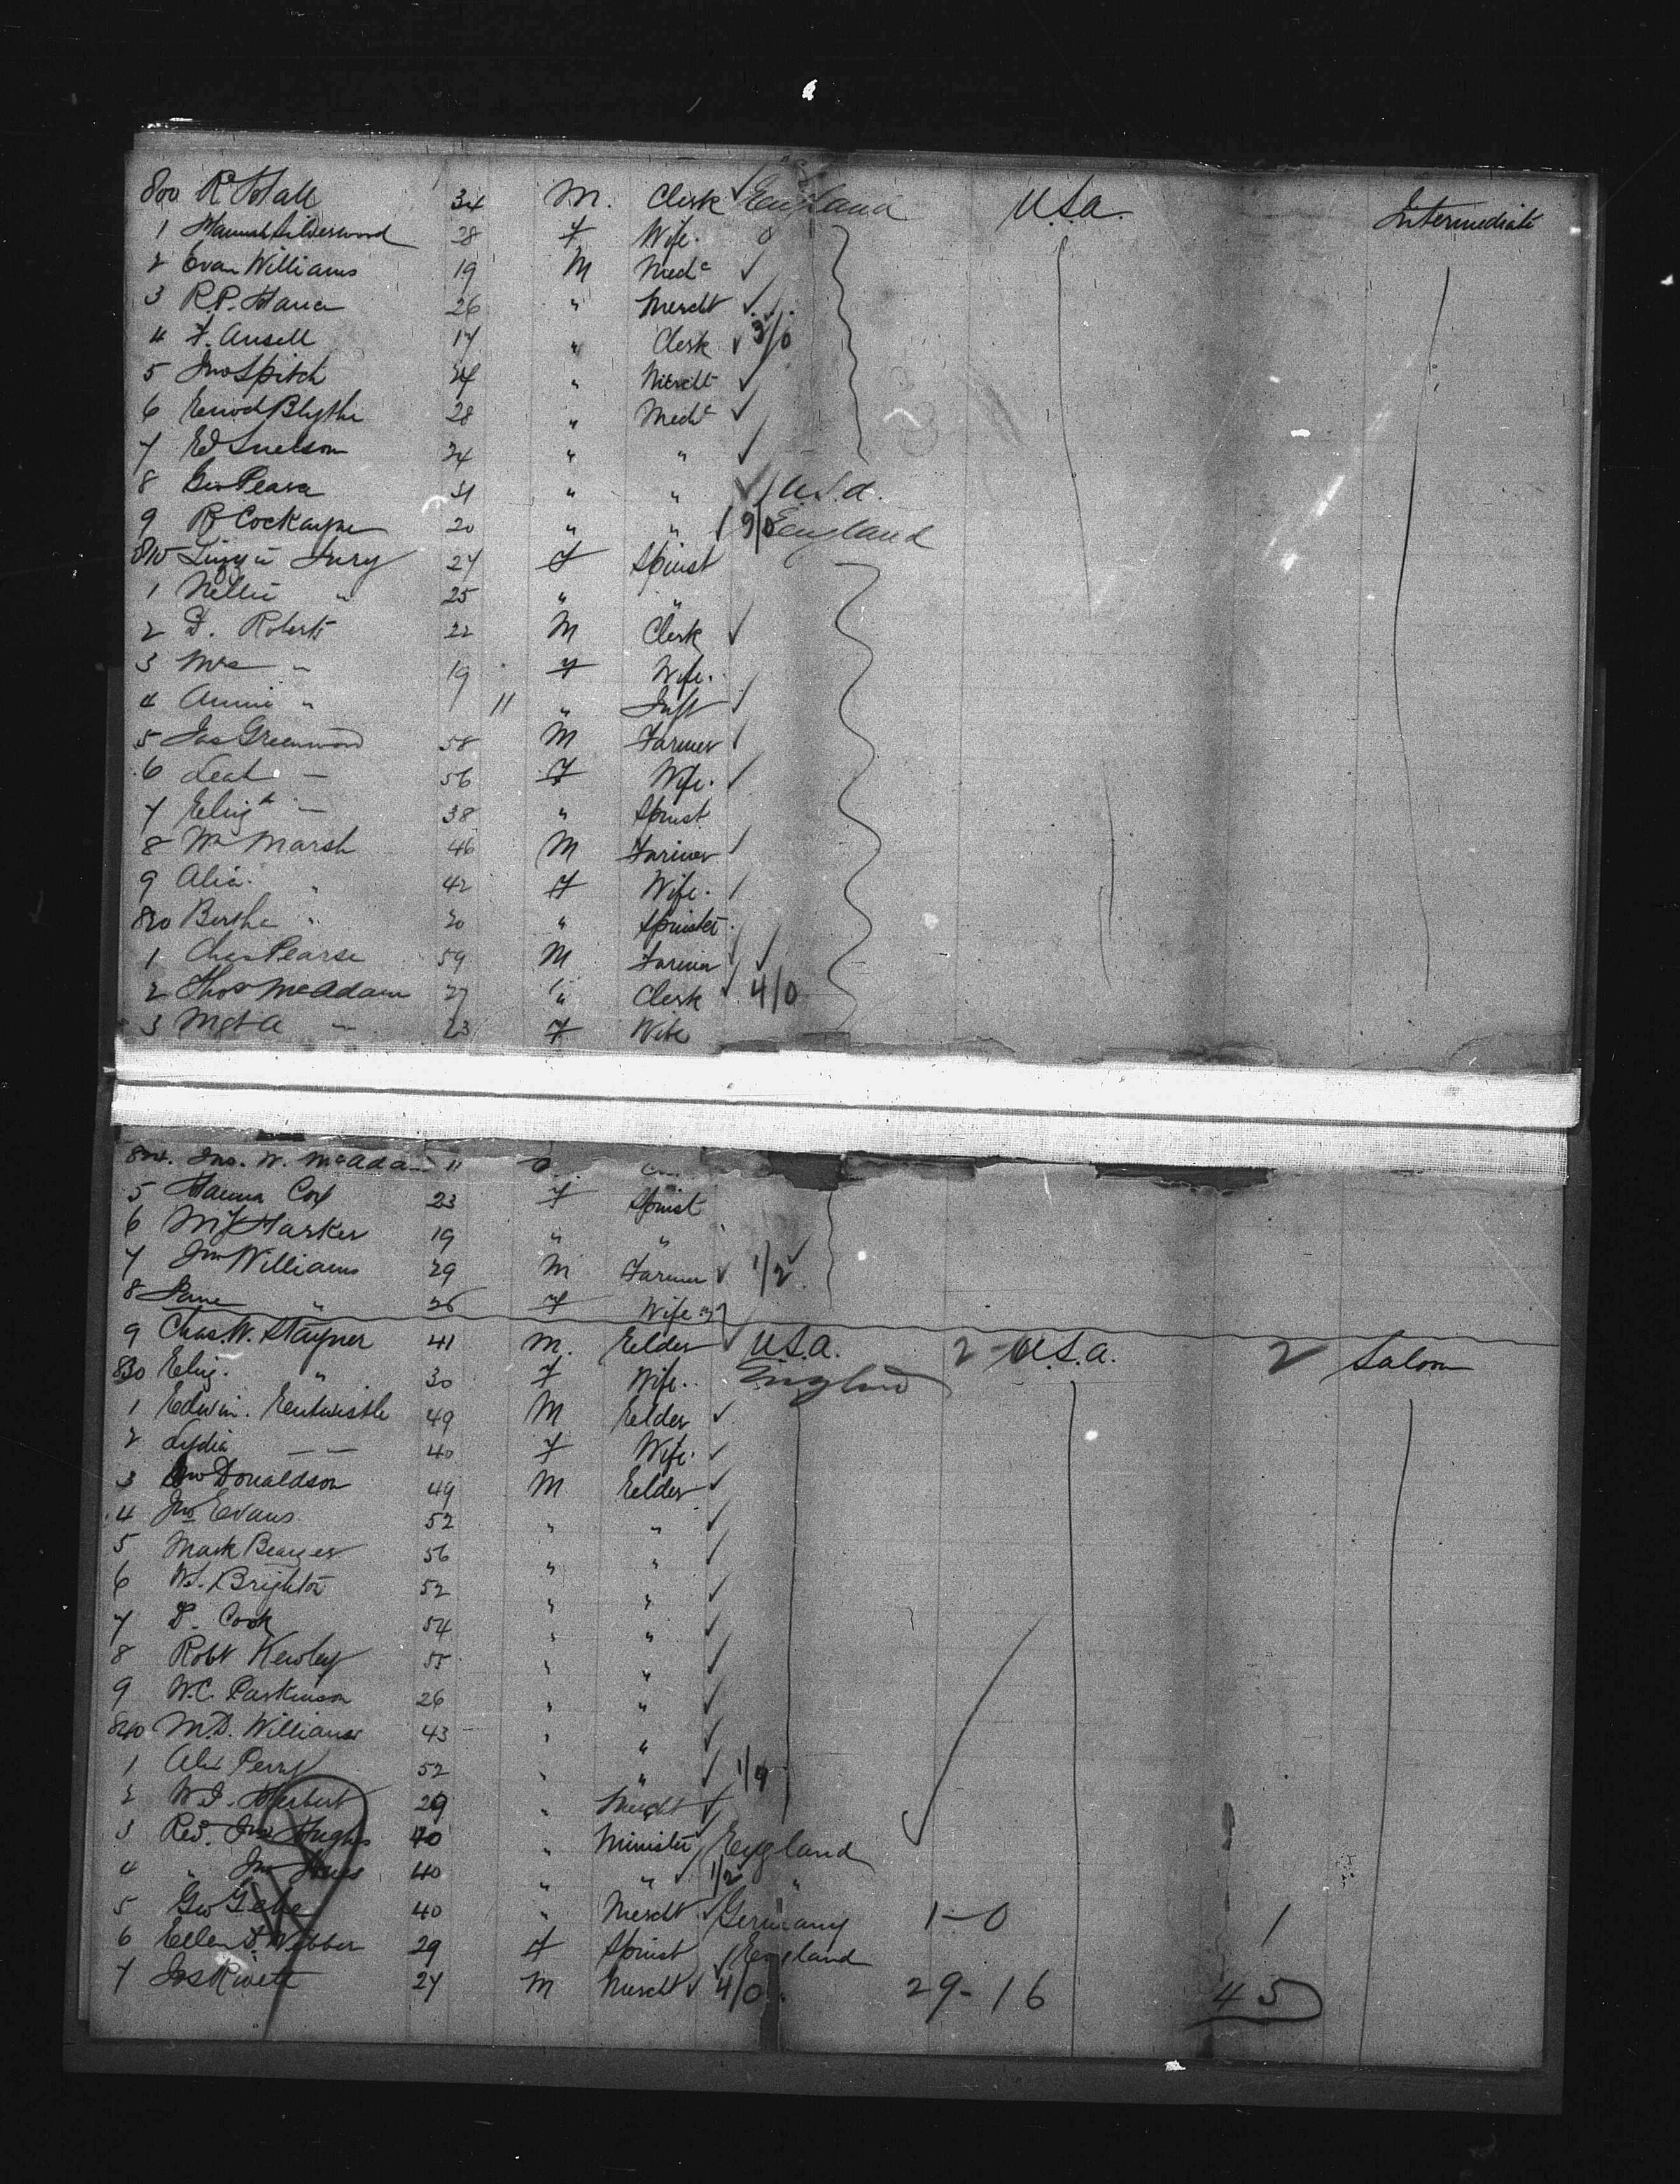 800 R Hall 34 M. Clerk England U.S.a. Intermediate
1 Hannah Silverwood 28 F Wife.
2 Evan Williams 19 M Medc
3 R.P. Hana 26 " Mercht
4 F. Ansell 17 " Clerk 3/0
5 Jno Spitch 24 " Mercht
6 Blythe 28 " Mechc
7 Ed Snelson 34 " "
8 Geo Pearce 31 " " U.S.a.
9 R Cockayne 20 " " 9/0 England
810 Lizzie Jury 27 F Spinst
1 Nellie " 25 " "
2 D. Roberts 22 M Clerk
3 Mrs " 19 F Wife.
4 Annie " 11 " Inft
5 Jas Greenwood 58 M Farmer
6 Leah — 56 F Wife.
7 Elizth — 38 " Spinst
8 Wm Marsh 46 M Farmer
9 Alice " 42 F Wife.
820 Bertha " 20 " Spinster
1 Chas Pearse 59 M Farmer
2 Thos McAdam 27 " Clerk 4/0
3 Mgt A — 23 F Wife
824. Jno. W. McAda 11
5 Hanna Cox 23 F Spinst
6 My Harker 19 " "
7 Jno Williams 29 M Farmer 1/2
8 Jane " 26 F Wife
9 Chas. W. Stayner 41 M. Eelder U.S.a. 2 - U.S.a. 2 Saloon
830 Eliz. " 30 F Wife. England
1 Edwin. Entwistle 49 M Eelder
2 Lydia — — 40 F Wife.
3 Donaldson 49 M Eelder
4 Jno Evans 52 " "
5 Mark Beazer 56 " "
6 W.S. Brighton 52 " "
7 D. Cook 54 " "
8 Robt Kewley 55 " "
9 W.C. Parkinson 26 " "
840 M.D. Williams 43 " "
1 Alex Perry 52 " " 1/9
2 W.J. Herbert 29 " Mercht
3 Rev. Jno Hughs 40 " Minister England
4 " Jno 40 " " 1/2 "
5 Geo 40 " Mercht Germany 1-0 1
6 Ellen D. Webber 29 F Spinst England
7 Jas Rivett 27 M Mercht 4/0 29-16 45